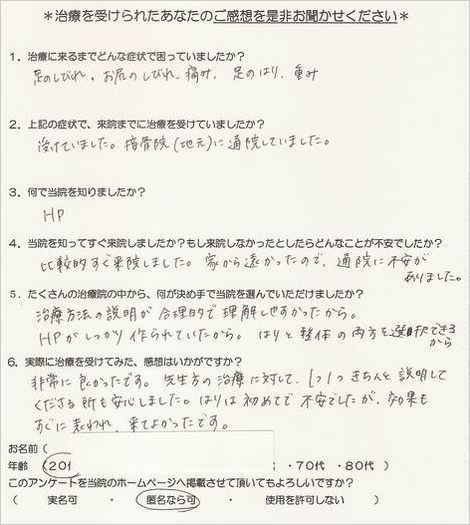 ＊治療を受けられたあなたのご感想を是非お聞かせください＊
1．治療に来るまでどんな症状で困っていましたか？
足のしびれ、お尻のしびれ、痛み、足のはり、重み
2．上記の症状で、来院までに治療を受けていましたか？
受けていました。接骨院(地元)に通院していました。
3．何で当院を知りましたか？
HP
4．当院を知ってすぐ来院しましたか？もし来院しなかったとしたらどんなことが不安でしたか？
比較的すぐ来院しました。家から遠かったので、通院に不安が
ありました。
5．たくさんの治療院の中から、何が決め手で当院を選んでいただけましたか？
治療方法の説明が合理的で理解しやすかったから。
HPがしっかり作られていたから。はりと整体の両方を選択できる
から
6．実際に治療を受けてみた、感想はいかがですか？
非常に良かったです。先生方の治療に対して、1つ1つきちんと説明して
くださる所も安心しました。はりは初めてで不安でしたが、効果も
すぐに表われ、来てよかったです。
お名前（
年齢（20代 ・70代 ・80代 ）
このアンケートを当院のホームページへ掲載させて頂いてもよろしいですか？
（ 実名可 ・ 匿名なら可 ・ 使用を許可しない ）